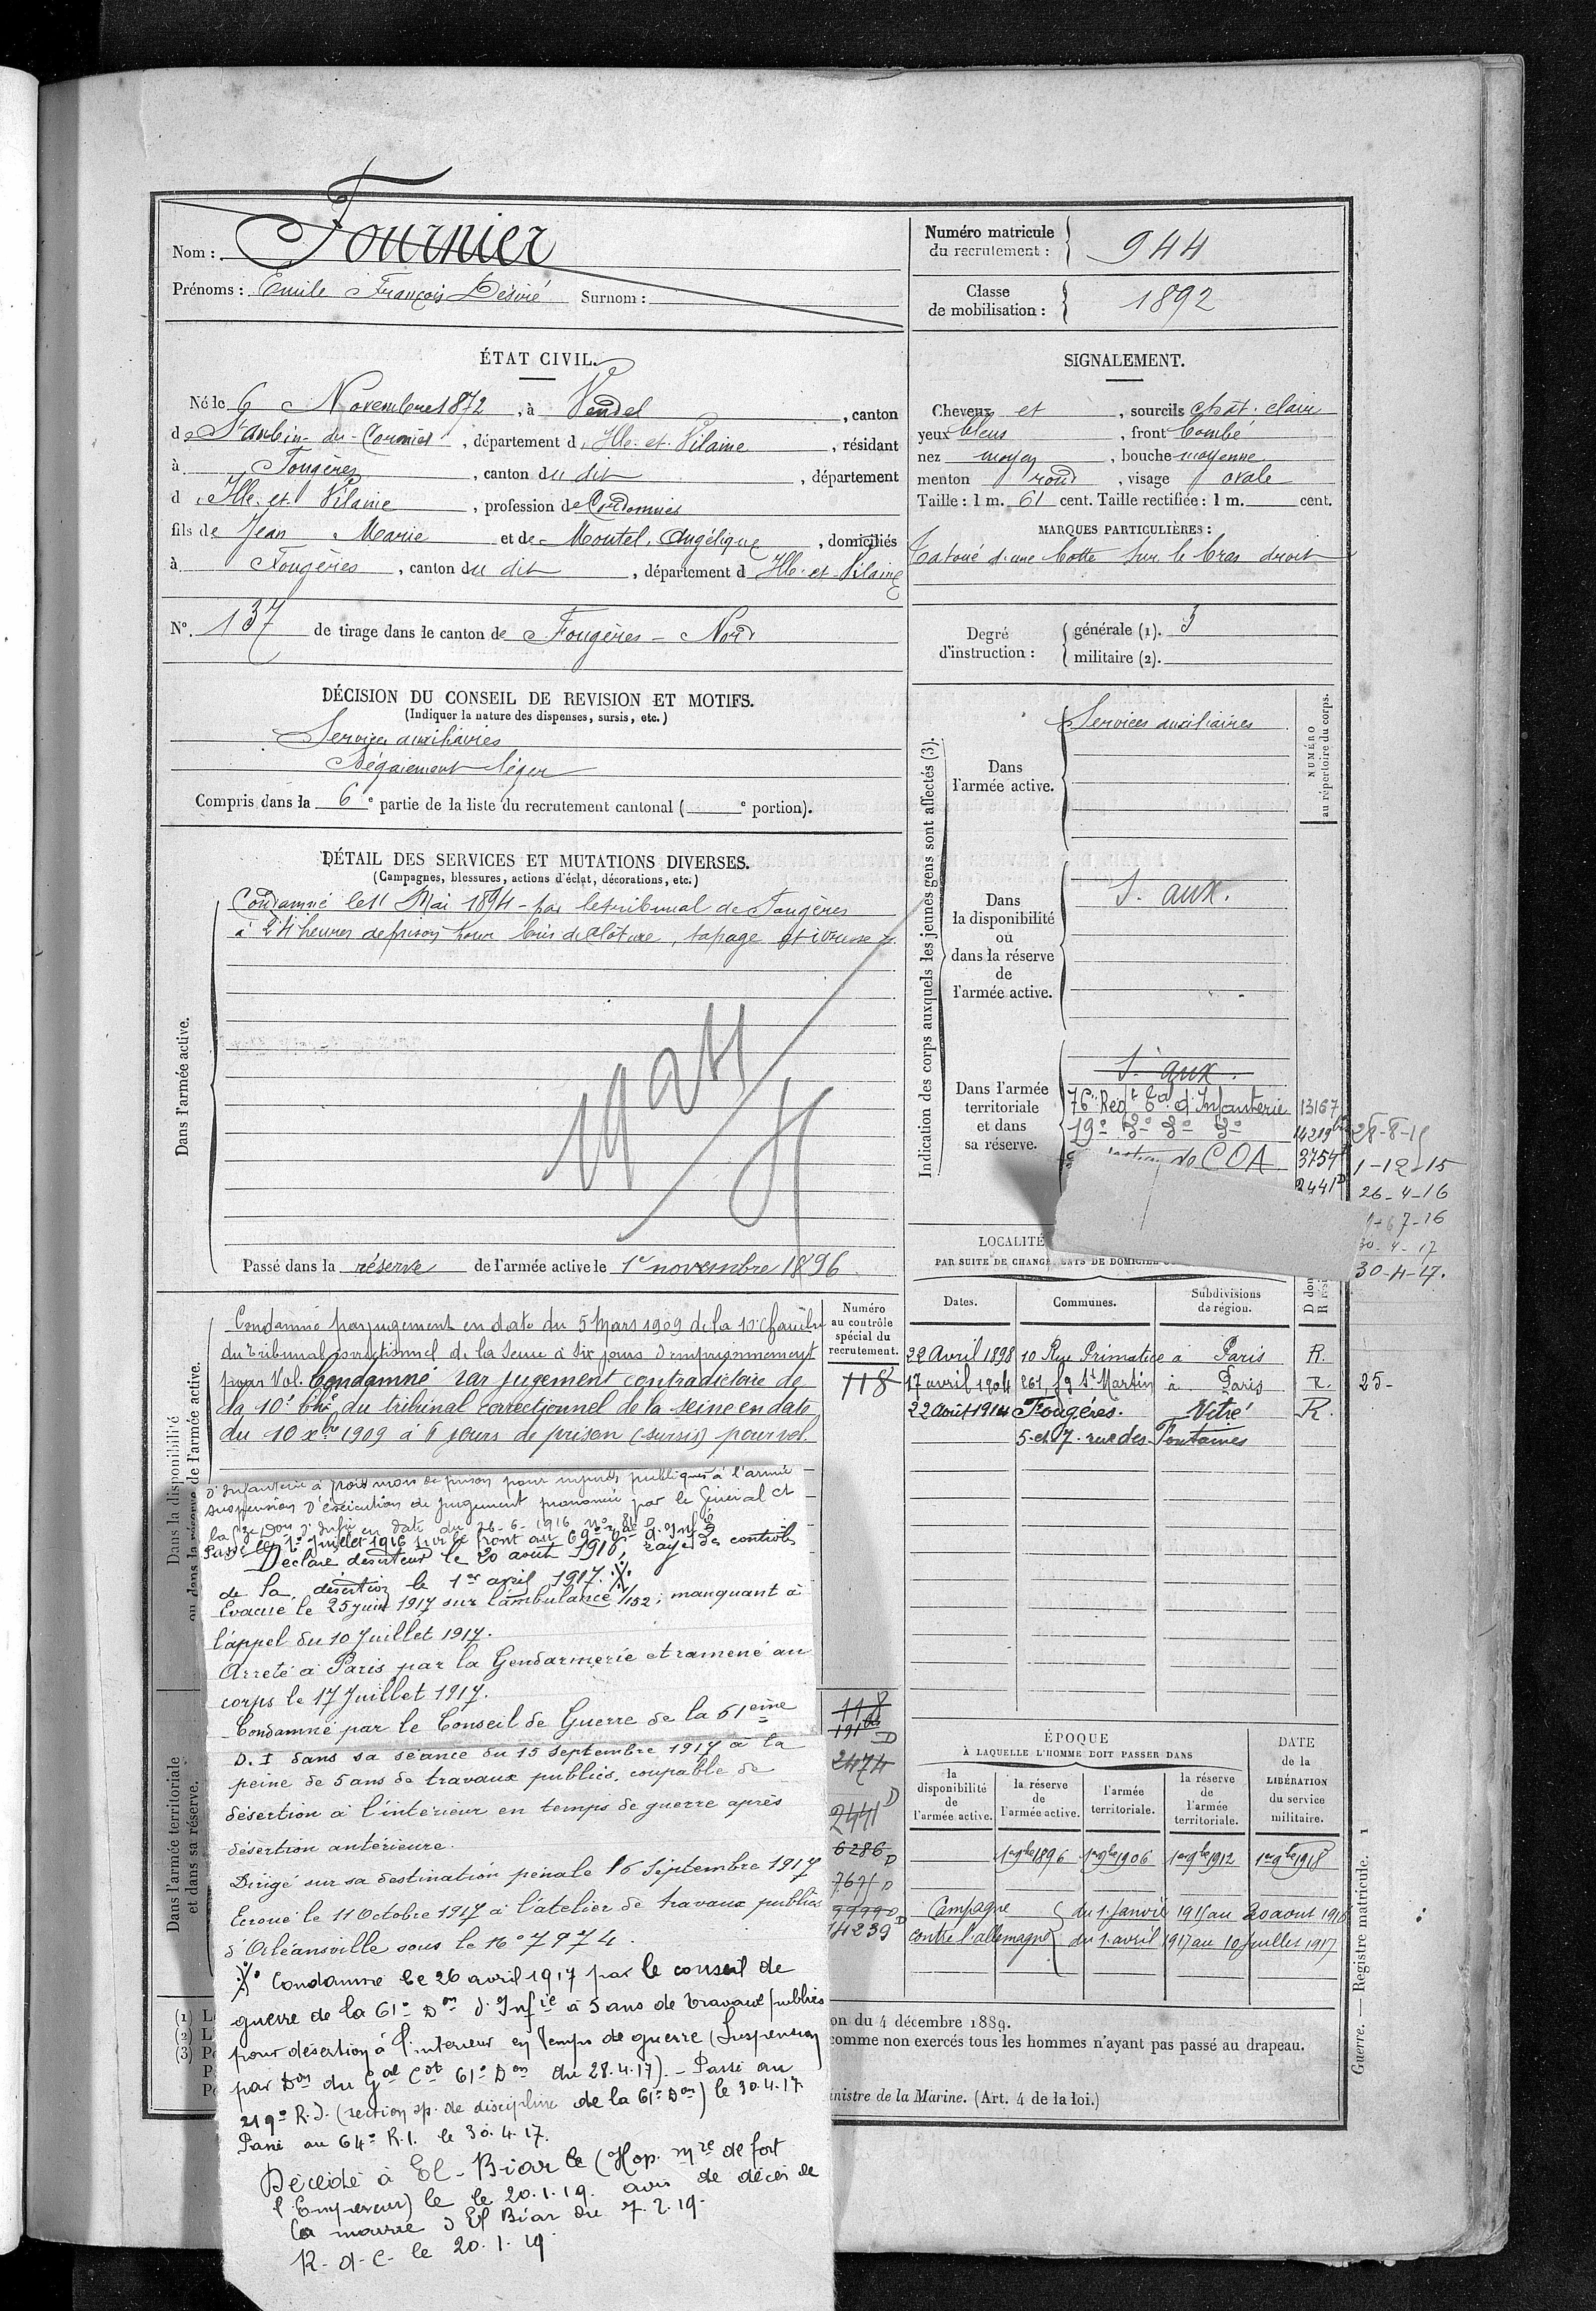 Nom : Fournier
Prénoms : Emile François Désiré Surnom :
Numéro matricule du recrutement : 944
Classe de mobilisation : 1892
ÉTAT CIVIL.
Né le 6 Novembre 1872, à Vendel, canton
de St Aubin-du-Cormier, département d'Ille-et-Vilaine, résidant
à Fougères, canton du dit, département
d'Ille-et-Vilaine, profession de Cordonnier
fils de Jean Marie et de Moutel, Angélique, domiciliés
à Fougères, canton du dit, département d'Ille-et-Vilaine
SIGNALEMENT.
Cheveux et, sourcils chât. clair
yeux bleus, front bombé
nez moyen, bouche moyenne
menton rond, visage ovale
Taille : 1 m. 61 cent. Taille rectifiée : 1 m. cent.
MARQUES PARTICULIÈRES :
Tatoué d'une botte sur le bras droit
N°. 137 de tirage dans le canton de Fougères - Nord
Degré d'instruction :
générale (1). 3
militaire (2).
DÉCISION DU CONSEIL DE REVISION ET MOTIFS.
(Indiquer la nature des dispenses, sursis, etc.)
Services auxiliaires
Bégaiement léger
Compris dans la 6e partie de la liste du recrutement cantonal ( e portion).
DÉTAIL DES SERVICES ET MUTATIONS DIVERSES.
(Campagnes, blessures, actions d'éclat, décorations, etc.)
Dans l'armée active.
Condamné le 11 Mai 1894 - par le tribunal de Fougères
à 24 heures de prison pour bris de clôture, tapage et ivresse
Passé dans la réserve de l'armée active le 1er novembre 1896
Indication des corps auxquels les jeunes gens sont affectés (3).
NUMÉRO au répertoire du corps.
Dans l'armée active.
Services auxiliaires
Dans la disponibilité ou dans la réserve de l'armée active.
S. aux.
Dans l'armée territoriale et dans sa réserve.
S. aux.
76e Régt tal d'Infanterie 13167
19e do do do 14219 28-8-15
de COA 3754 1-12-15
2441 D 26-4-16
7-16
30-4-17
30-4-17.
LOCALITÉ
PAR SUITE DE CHANGEMENTS DE DOMICILE
Dates. Communes. Subdivisions de région.
22 Avril 1898 10 Rue Primatice à Paris R.
17 avril 1904 261, fg St Martin à Paris R. 25-
22 Août 1914 Fougères. Vitré R.
5 et 7. rue des Fontaines
Dans la disponibilité ou dans la réserve de l'armée active.
Numéro au contrôle spécial du recrutement.
118
Condamné par jugement en date du 5 Mars 1909 de la 10e Chambre
du Tribunal correctionnel de la Seine à six jours d'emprisonnement
pour Vol. Condamné par jugement contradictoire de
la 10e Chbre du tribunal correctionnel de la Seine en date
du 10 xbre 1909 à 6 jours de prison (sursis) pour vol.
d'Infanterie à trois mois de prison pour injures publiques à l'armée
suspension d'exécution de jugement prononcée par le Général Ct
la Don d'Infie en date du 26-6-1916
Passé le 1er Juillet 1916 sur le front au
Déclaré déserteur le 20 août 1916, rayé des contrôles
de la désertion le 1er avril 1917.
Evacué le 25 juin 1917 sur l'ambulance 1/152 ; manquant à
l'appel du 10 Juillet 1917.
Arrêté à Paris par la Gendarmerie et ramené au
corps le 17 Juillet 1917.
Condamné par le Conseil de Guerre de la 61eme
D. I dans sa séance du 15 Septembre 1917 à la
peine de 5 ans de travaux publics, coupable de
désertion à l'intérieur en temps de guerre après
désertion antérieure.
Dirigé sur sa destination pénale 16 Septembre 1917
Ecroué le 11 Octobre 1917 à l'atelier de travaux publics
d'Orléansville sous le No 7974.
Condamné le 26 avril 1917 par le conseil de
guerre de la 61e Don d'Infie à 5 ans de travaux publics
pour désertion à l'intérieur en temps de guerre (Suspension
par Don du Gal Ct 61e Don du 28.4.17). - Passé au
219e R.I. (section sp. de discipline de la 61e Don) le 30.4.17.
Passé au 64e R.I. le 30.4.17.
Décédé à El-Biar le (Hop. mre de fort
l'Empereur) le le 20.1.19. avis de décès de
la mairie d'El Biar du 7.2.19.
R-d-C- le 20.1.19
Dans l'armée territoriale et dans sa réserve.
118
191 bis D
2474
2441 D
6286 D
7675 D
9999 D
14239 D
ÉPOQUE
À LAQUELLE L'HOMME DOIT PASSER DANS
la disponibilité de l'armée active.
la réserve de l'armée active.
l'armée territoriale.
la réserve de l'armée territoriale.
DATE de la LIBÉRATION du service militaire.
1er 9bre 1896 1er 9bre 1906 1er 9bre 1912 1er 9bre 1918
Campagne contre l'allemagne
du 1. Janvier 1915 au 20 aout 1916
du 1. avril 1917 au 10 juillet 1917
(1) L
(2) L
(3) P
on du 4 décembre 1889.
comme non exercés tous les hommes n'ayant pas passé au drapeau.
inistre de la Marine. (Art. 4 de la loi.)
Guerre. — Registre matricule. 1